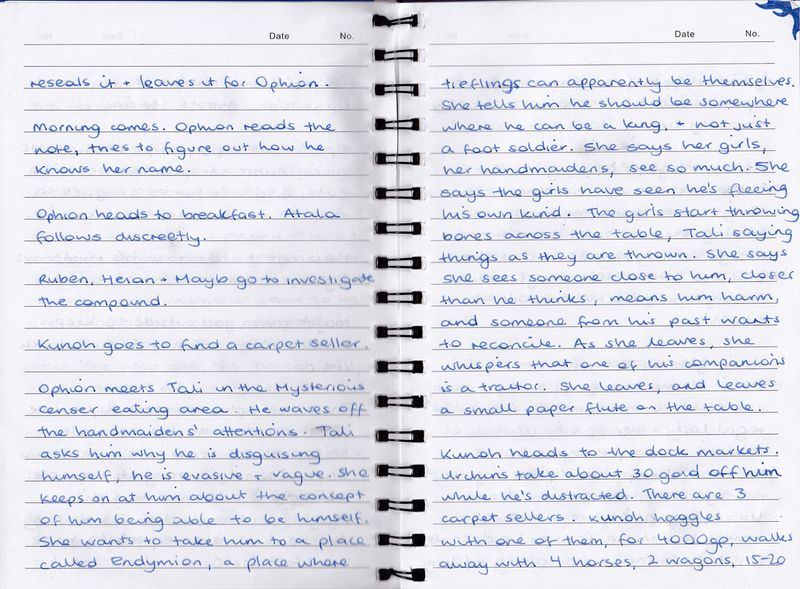 Date No.
reseals it + leaves it for Ophion.
Morning comes. Ophion reads the
note, tries to figure out how he
knows her name.
Ophion heads to breakfast. Atala
follows discreetly.
Ruben, Heran + Mayb go to investigate
the compound.
Kunoh goes to find a carpet seller.
Ophion meets Tali in the Mysterious
censer eating area. He waves off
the handmaidens' attentions. Tali
asks him why he is disguising
himself, he is evasive + vague. She
keeps on at him about the concept
of him being able to be himself.
She wants to take him to a place
called Endymion, a place where
Date No.
tieflings can apparently be themselves.
She tells him he should be somewhere
where he can be a king, + not just
a foot soldier. She says her girls,
her handmaidens, see so much. She
says the girls have seen he's fleeing
his own kind. The girls start throwing
bones across the table, Tali saying
things as they are thrown. She says
she sees someone close to him, closer
than he thinks, means him harm,
and someone from his past wants
to reconcile. As she leaves, she
whispers that one of his companions
is a traitor. She leaves, and leaves
a small paper flute on the table.
Kunoh heads to the dock markets.
Urchins take about 30 gold off him
while he's distracted. There are 3
carpet sellers. Kunoh haggles
with one of them, for 4000gp, walks
away with 4 horses, 2 wagons, 15-20